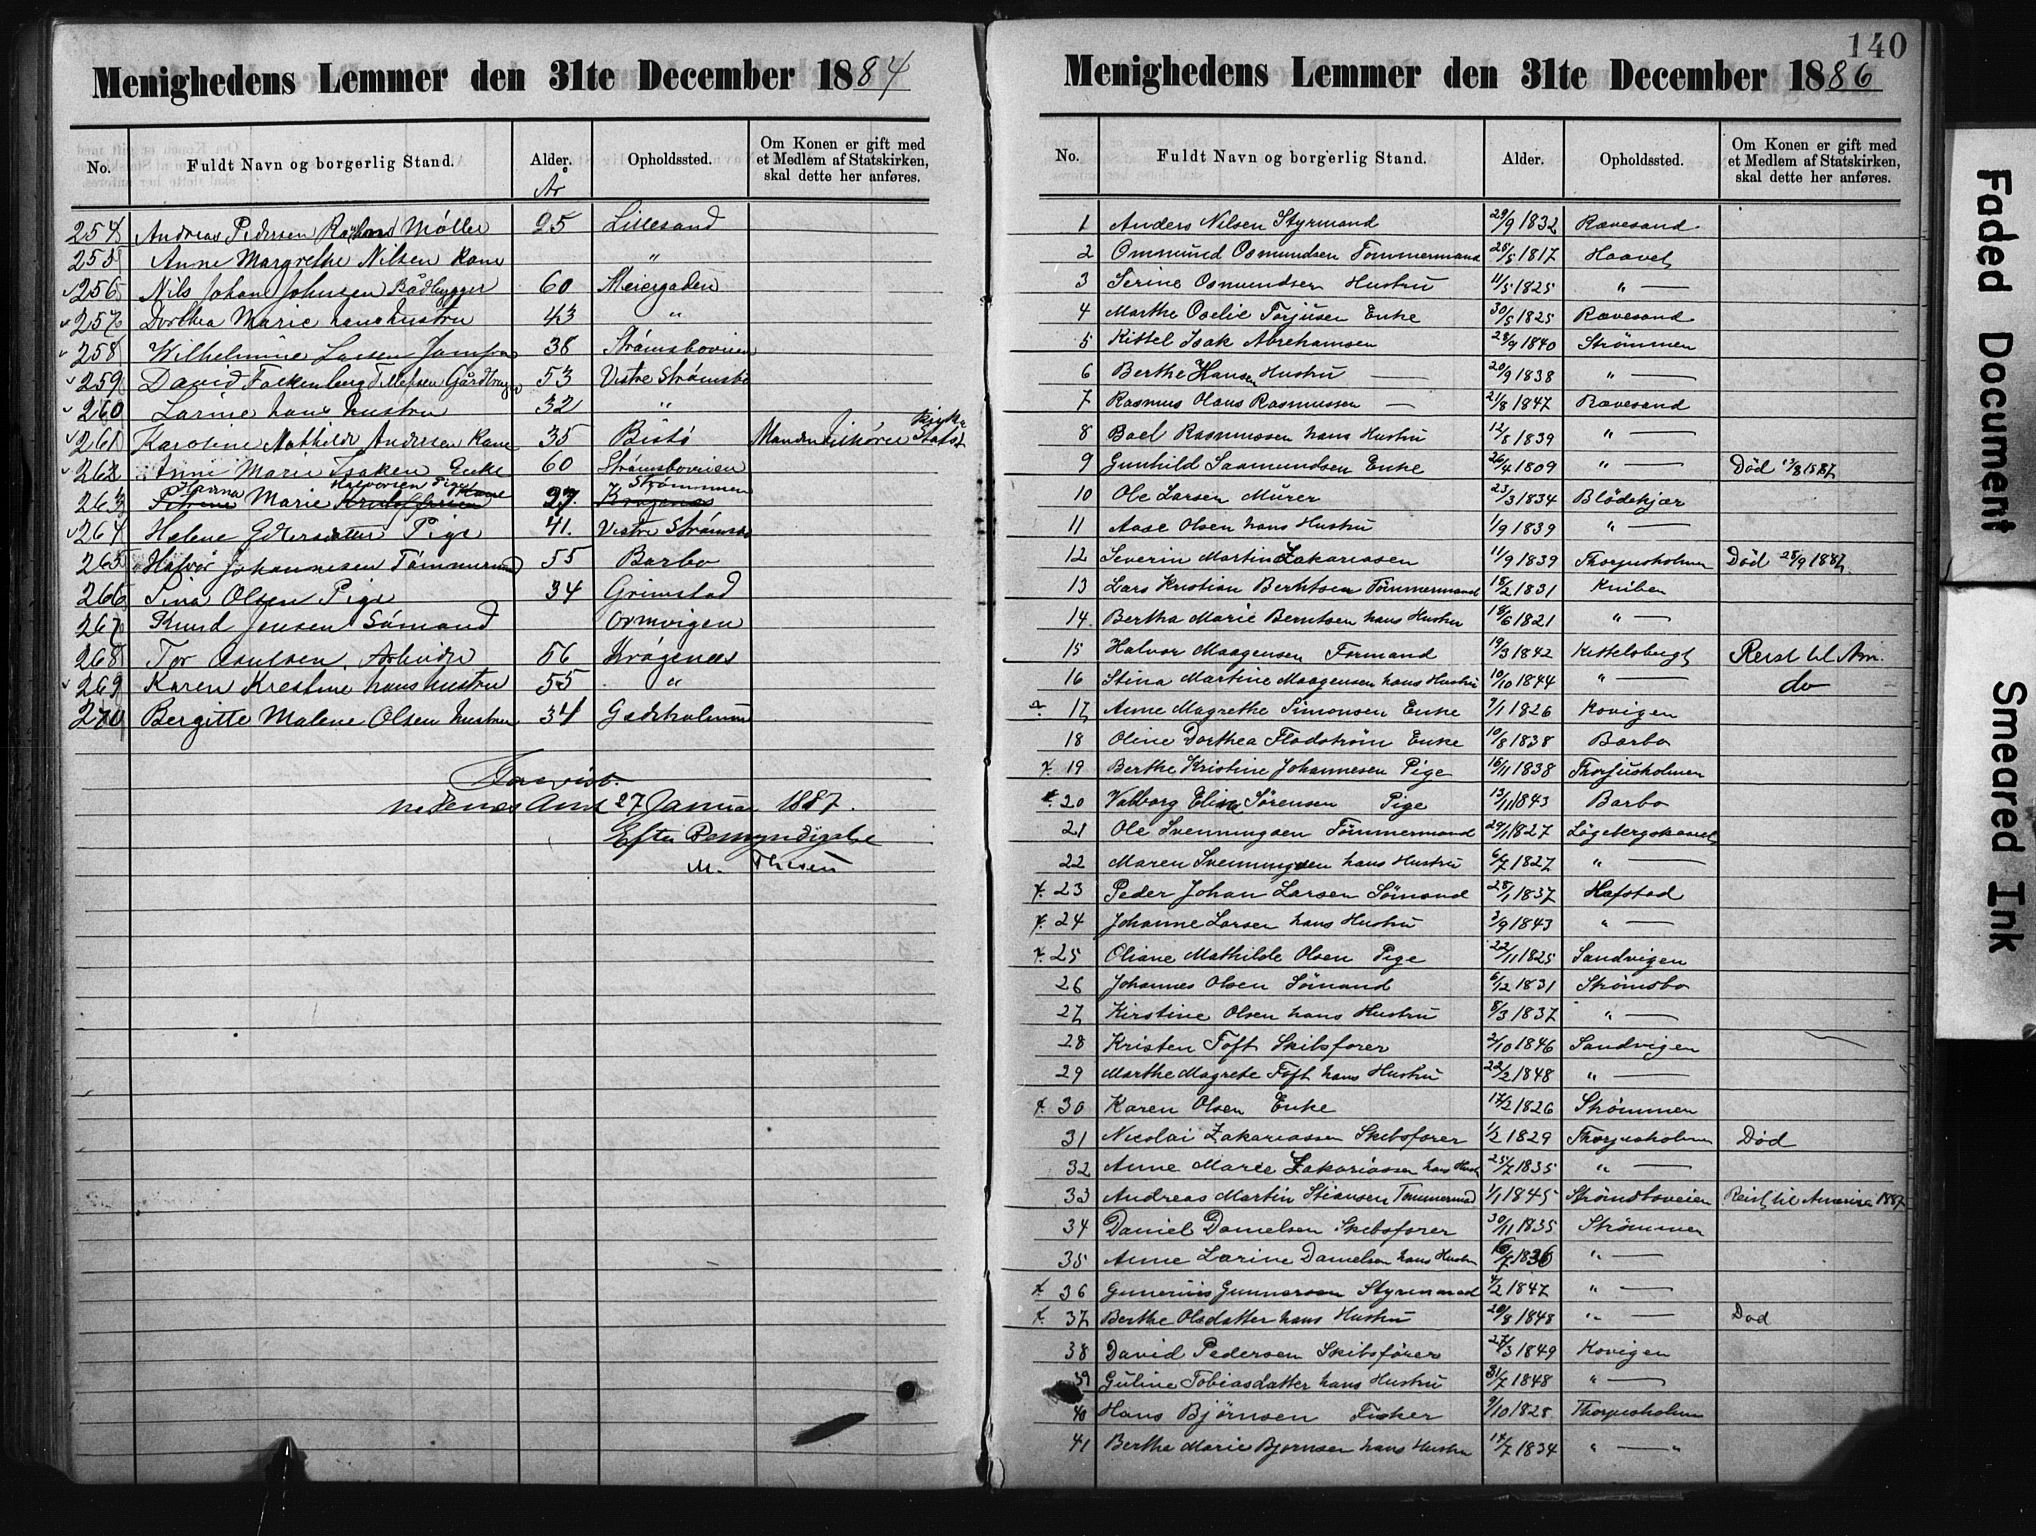 Menighedens Lemmer den 31te December 1884
No. Fuldt Navn og borgerlig Stand. Alder. Opholdssted. Om Konen er gift med et Medlem af Statskirken, skal dette her anføres.
År
254 Andreas Pedersen Møller 25 Lillesand
255 Anne Margrethe Nilsen Kone "
256 Nils Johan Johnsen Bådbygger 60 Meiergaden
257 Dorthea Marie hans hustru 43 "
258 Wilhelmine Larsen Jomfru 38 Strømsboveien
259 David Falkenberg Tellefsen 53 Vestre Strømsbo
260 Larine hans hustru 32 "
261 Karoline Mathilde Andersen Kone 35 Bistø Manden tilhører Statsk
262 Anne Marie Isaksen Enke 60 Strømsboveien
263 Hanna Marie Halvorsen Pige 27. Strømmen
264 Helene Pige 41. Vestre Strømsbo
265 Halvor Johannesen Tømmermand 55 Barbo
266 Sina Olsen Pige 34 Grimstad
267 Knud Jensen Sømand Ormvigen
268 Tor Arbeider 56 Krøgenæs
269 Karen Kristine hans hustru 55 "
270 Bergitte Malene Olsen hustru 34 Gadeholmen
Forevist.
Nedenes Amt 27 Januar 1887.
Efter Bemyndigelse
M. Thesen
140
Menighedens Lemmer den 31te December 1886
No. Fuldt Navn og borgerlig Stand. Alder. Opholdssted. Om Konen er gift med et Medlem af Statskirken, skal dette her anføres.
1 Anders Nilsen Styrmand 29/9 1832 Rævesand
2 Ommund Osmundsen Tømmermand 25/5 1817 Haavet
3 Serine Osmundsen Hustru 11/5 1825 " —
4 Marthe Oselie Torjusen Enke 30/5 1825 Rævesand
5 Kittel Isak Abrahamsen 28/9 1840 Strømmen
6 Berthe Hansen Hustru — 20/9 1838 " —
7 Rasmus Olaus Rasmussen — 21/8 1847 Rævesand
8 Boel Rasmussen hans Hustru 12/8 1839 " —
9 Gunhild Saamundsen Enke 26/4 1809 " — Død 12/3 1887
10 Ole Larsen Murer 23/3 1834 Blødekjær
11 Aase Olsen hans Hustru 1/9 1839 " —
12 Severin Martin Zakariasen 11/9 1839 Thorjusholmen Død 25/9 1887.
13 Lars Kristian Berntsen Tømmermand 18/2 1831 Kniben
14 Bertha Marie Berntsen hans Hustru 18/6 1821 " —
15 Halvor Maagensen Formand 19/3 1842 Kittelsbugt Reist til Am.
16 Stina Martine Maagensen hans Hustru 10/10 1844 " — do
17 Anne Magrethe Simonsen Enke 9/1 1826 Kovigen
18 Oline Dorthea Flodstrøm Enke 10/8 1838 Barbo
19 Berthe Kristine Johannesen Pige 16/11 1838 Thorjusholmen
20 Valborg Elise Sørensen Pige 13/11 1843 Barbo
21 Ole Svenningsen Tømmermand 29/1 1827
22 Maren Svenningsen hans Hustru 6/7 1827 " —
23 Peder Johan Larsen Sømand 28/1 1837 Hafstad
24 Johanne Larsen hans Hustru 3/9 1843 " —
25 Oliane Mathilde Olsen Pige 22/11 1825 Sandvigen
26 Johannes Olsen Sømand 6/12 1831 Strømsbo
27 Kirstine Olsen hans Hustru 8/3 1837 " —
28 Kristen Toft Skibsfører 2/10 1846 Sandvigen
29 Marthe Magrete Toft hans Hustru 22/2 1848 " —
30 Karen Olsen Enke 17/2 1826 Strømmen
31 Nicolai Zakariassen Skibsfører 1/2 1829 Thorjusholmen Død
32 Anne Marie Zakariassen hans Hust 25/7 1835 " —
33 Andreas Martin Stiansen Tømmermand 1/1 1845 Strømsboveien Reist til Amerika 1887
34 Daniel Danielsen Skibsfører 30/11 1835 Strømmen
35 Anne Larine Danielsen hans Hustru 1836 " —
36 Gunerius Gunnersen Styrmand 4/2 1847 " —
37 Berthe Olsdatter hans Hustru 20/8 1848 " — Død
38 David Pedersen Skibsfører 27/3 1849 Kovigen
39 Guline Tobiasdatter hans Hustru 31/7 1848 " —
40 Hans Bjørnsen Fisker 9/10 1828 Thorjusholmen
41 Berthe Marie Bjørnsen hans Hustru 14/7 1834 " — "
Faded Document
Smeared Ink